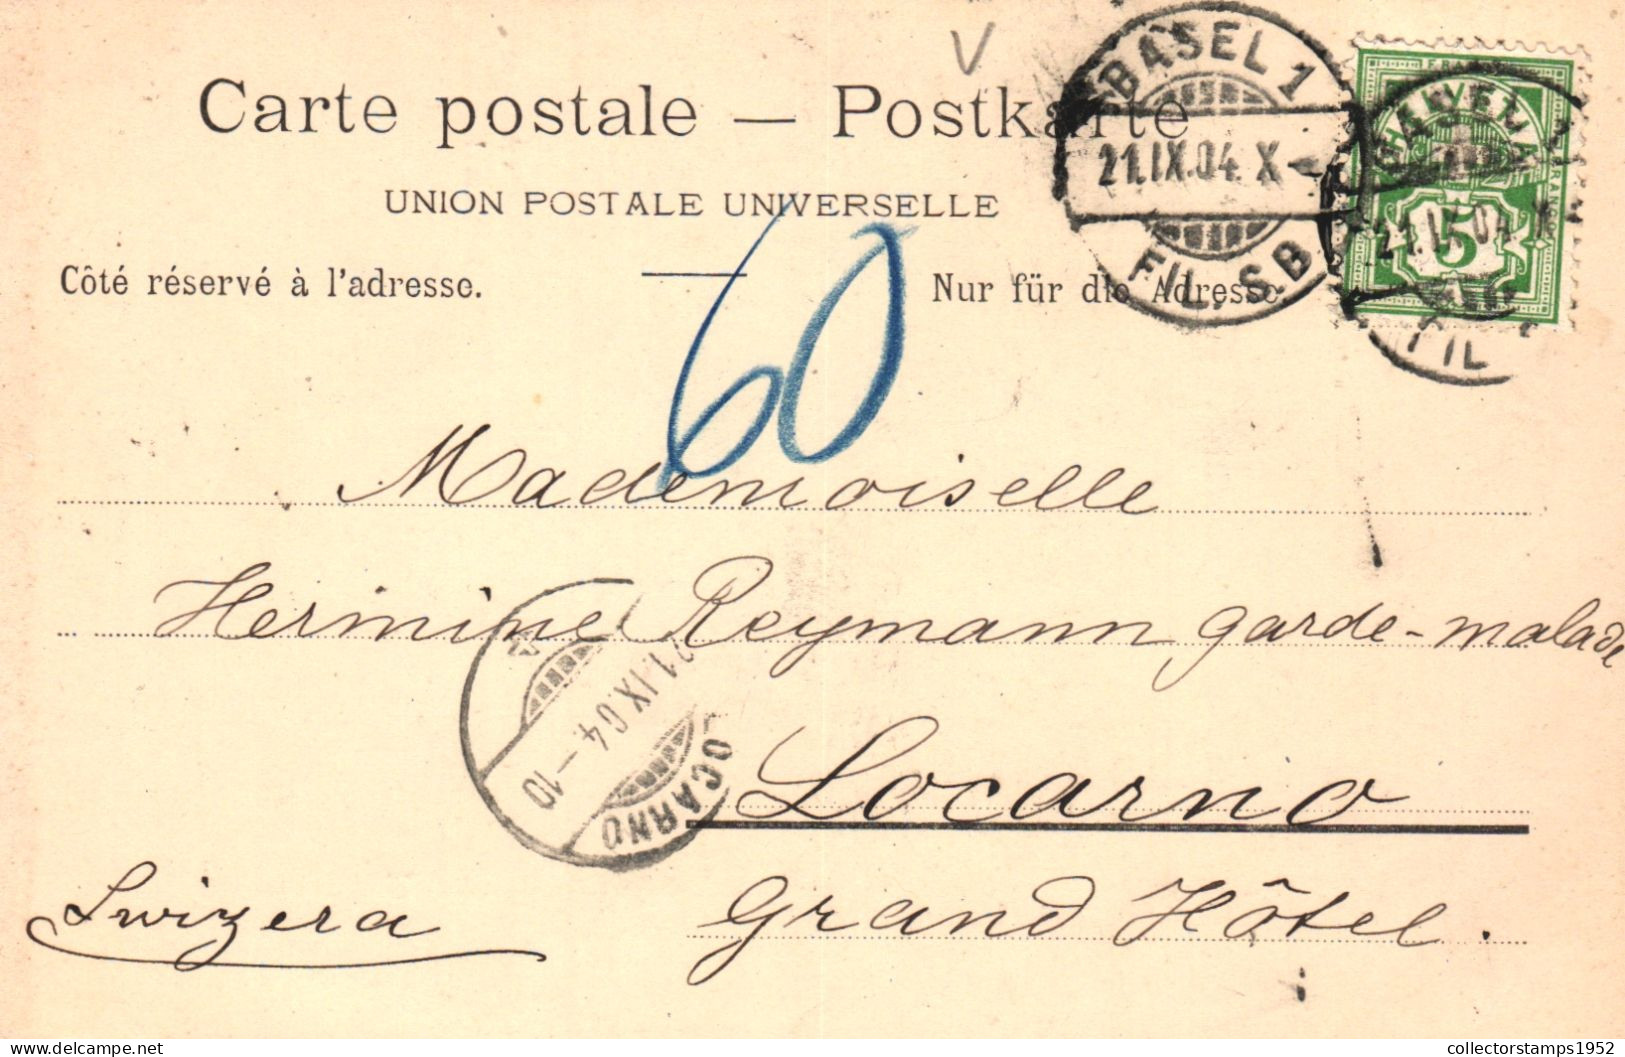 V
Carte postale — Postkarte
UNION POSTALE UNIVERSELLE
Côté réservé à l'adresse.
Nur für die Adresse.
BASEL 1
21.IX.04. X-
FIL. S.B
FRANCO
HELVETIA
5
FIL
60
Mademoiselle
Hermine Reymann garde-malade
21.IX.04.-10
LOCARNO
Locarno
Grand Hôtel.
Swizera
collectorstamps1952